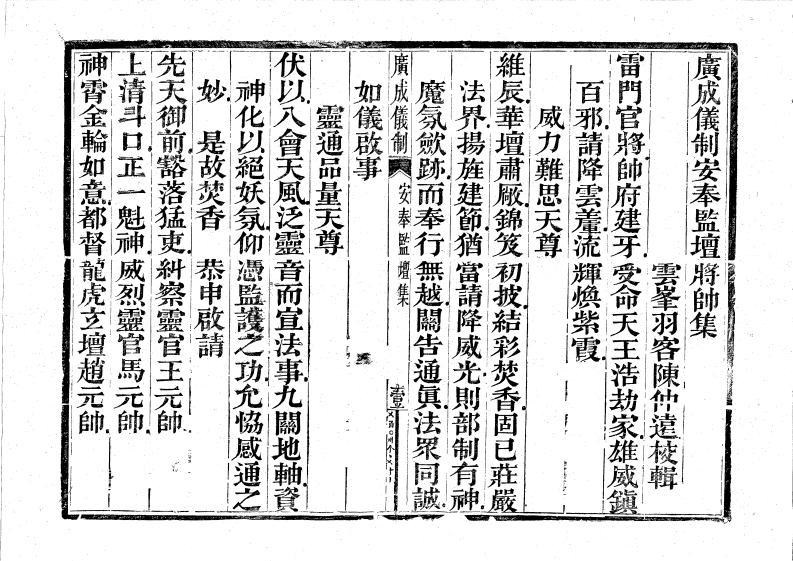 廣成儀制安奉監壇將帥集
雲峯羽客陳仲遠校輯
雷門官將帥府建牙受命天王浩劫家雄威鎮
百邪請降雲輂流輝煥紫霞
威力難思天尊
維辰華壇肅厰錦笈初披結彩焚香固已莊嚴
法界揚旌建節猶當請降威光則部制有神
魔氛歛跡而奉行無越關告通眞法眾同誠
如儀啟事
廣成儀制 安奉監壇集 壹
靈通品量天尊
伏以八會天風泛靈音而宣法事九關地軸資
神化以絕妖氛仰憑監護之功允恊感通之
妙 是故焚香 恭申啟請
先天御前豁落猛吏糾察靈官王元帥
上清斗口正一魁神威烈靈官馬元帥
神霄金輪如意都督龍虎玄壇趙元帥